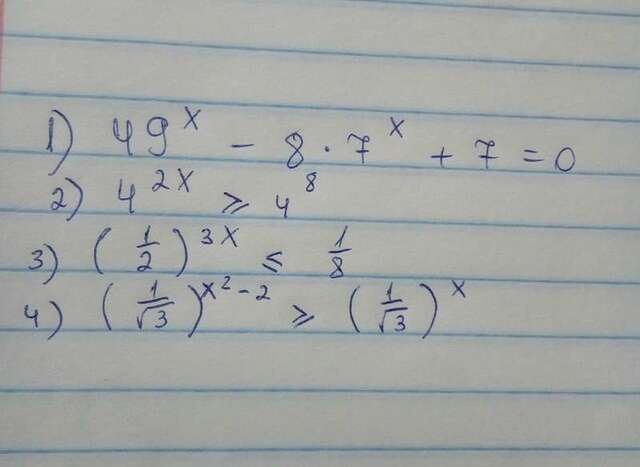 1) 49^x - 8 · 7^x + 7 = 0
2) 4^{2x} ≥ 4^8
3) (1/2)^{3x} ≤ 1/8
4) (1/√3)^{x^2-2} ≥ (1/√3)^x